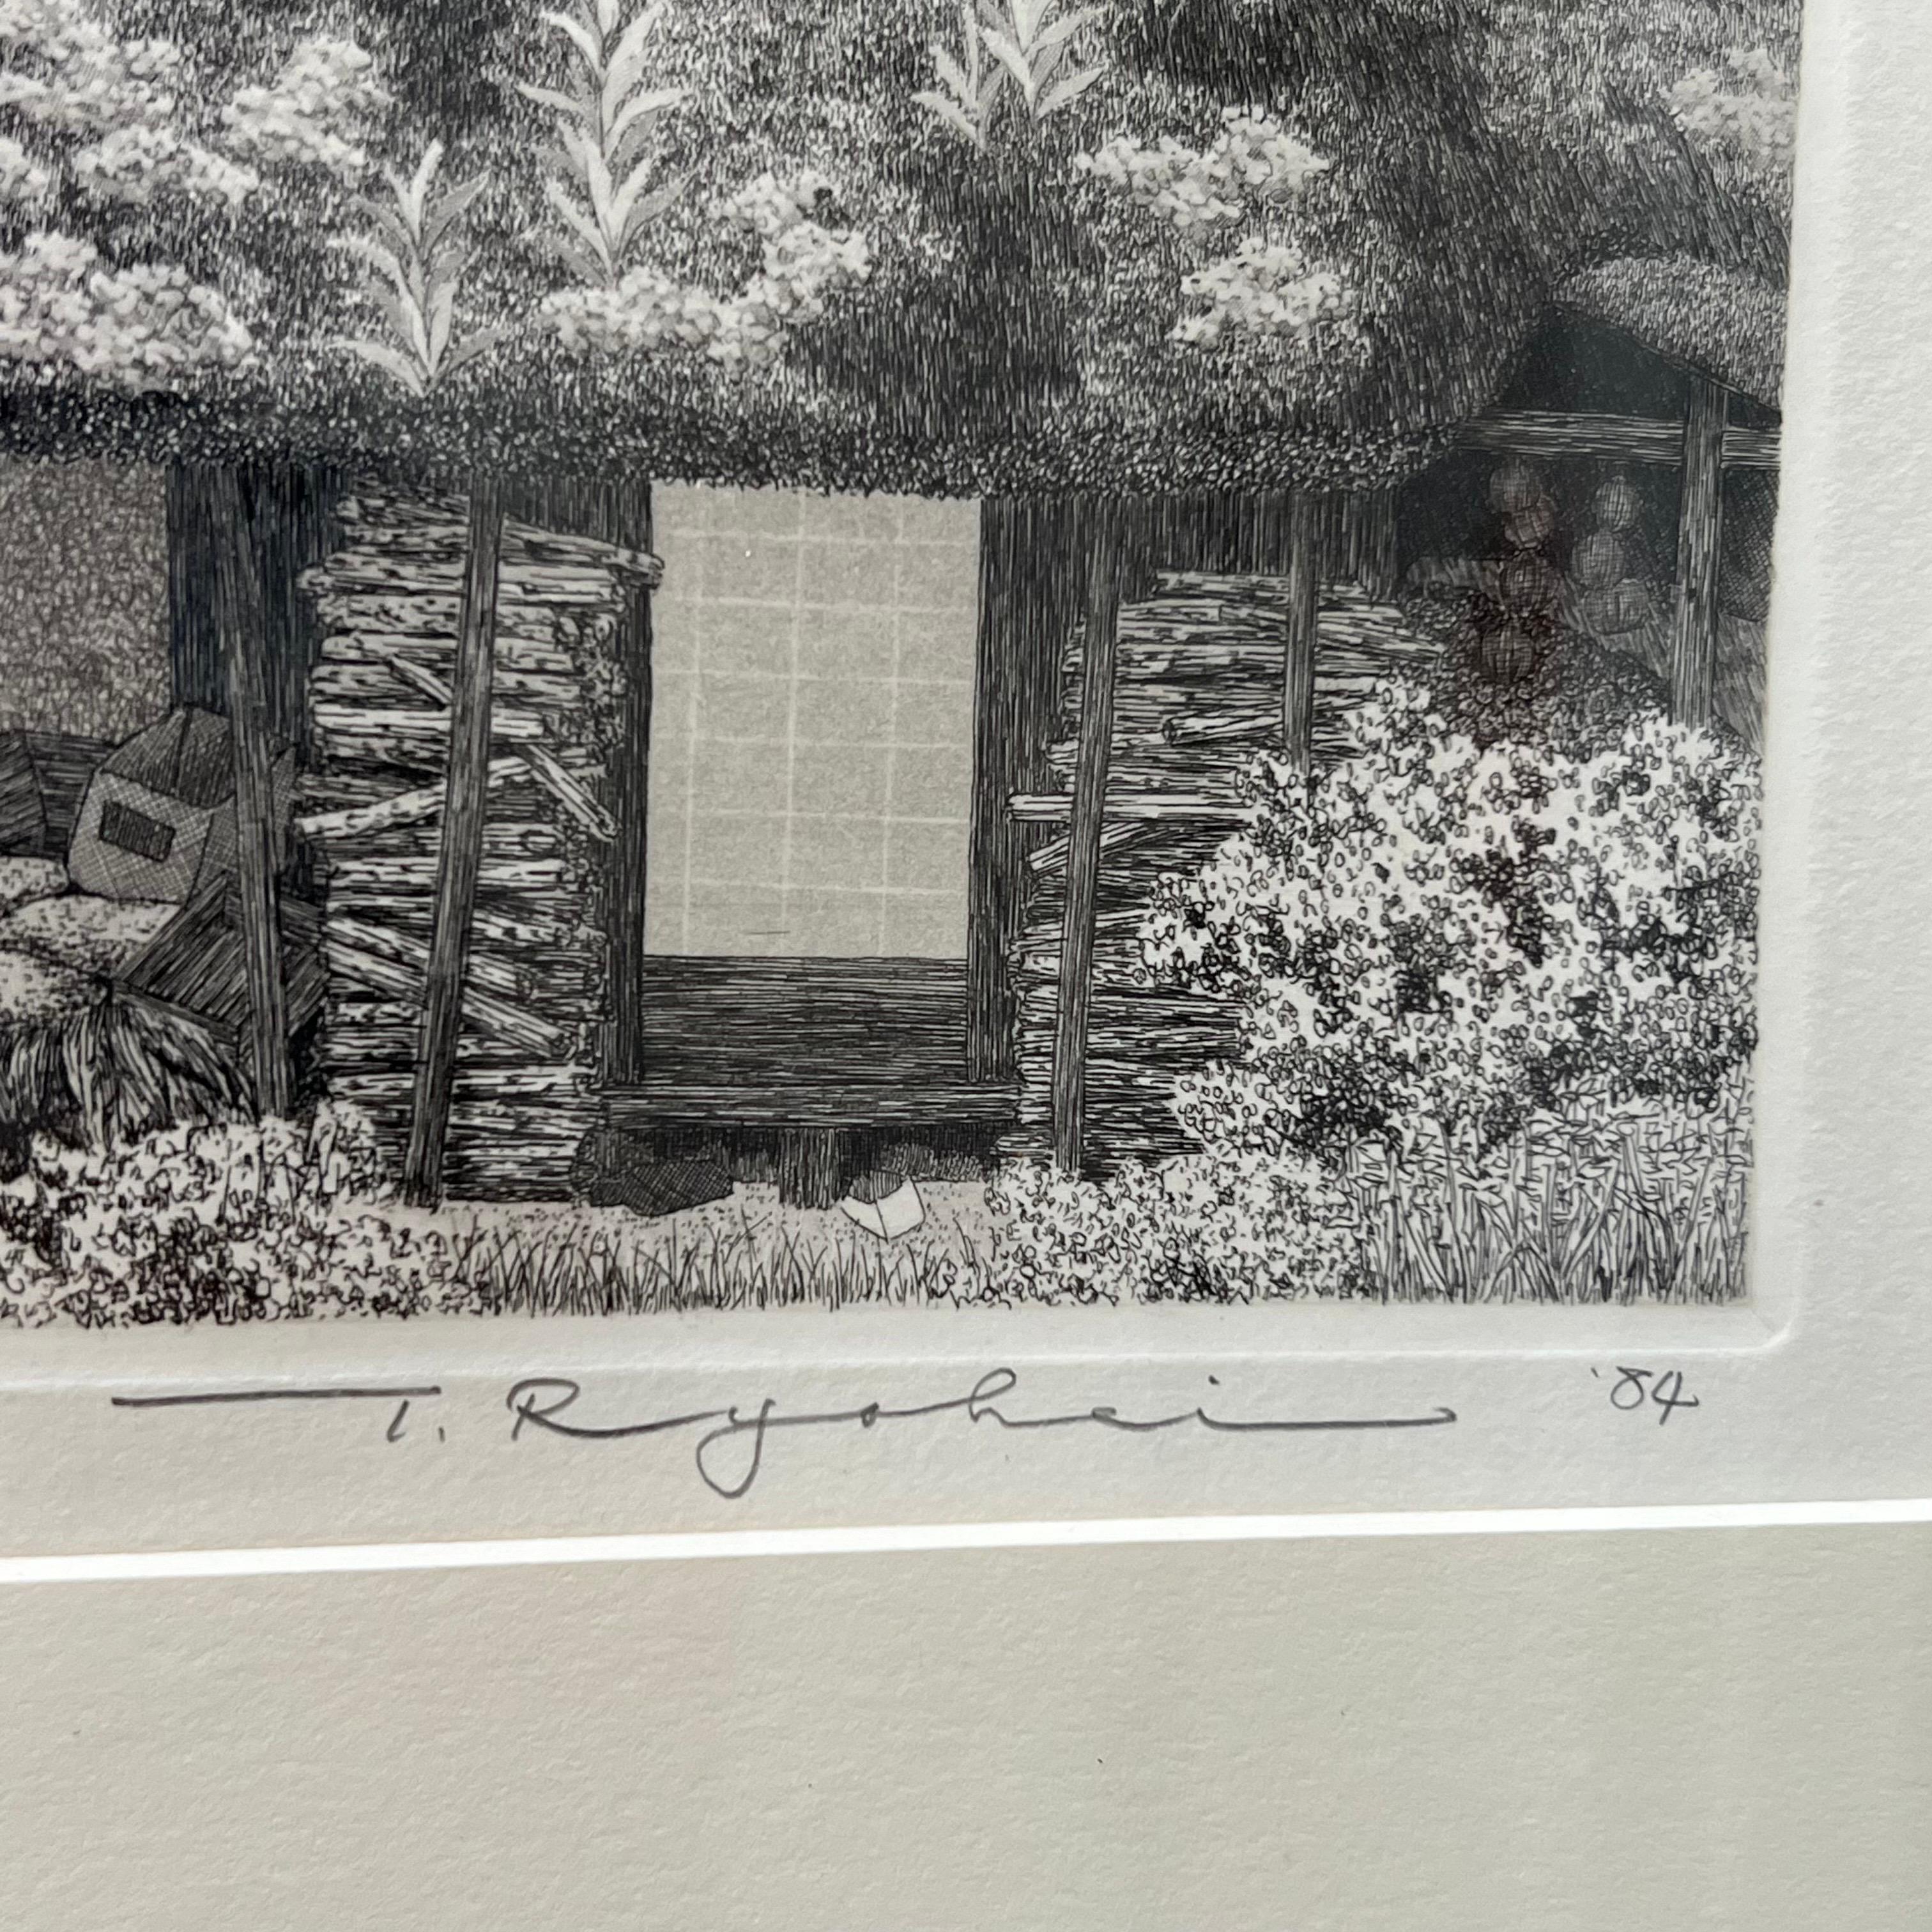 T. Ryohei '84